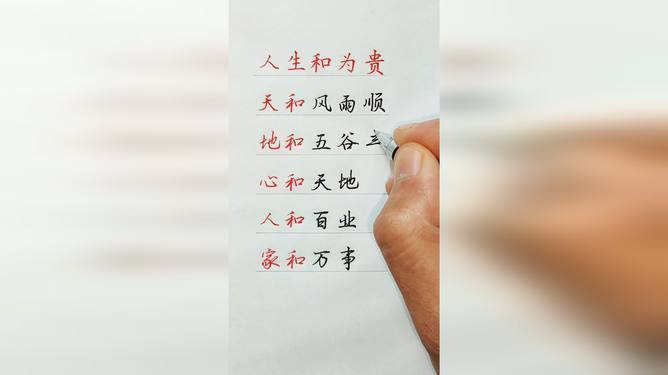 人生和为贵
天和风雨顺
地和五谷
心和天地
人和百业
家和万事